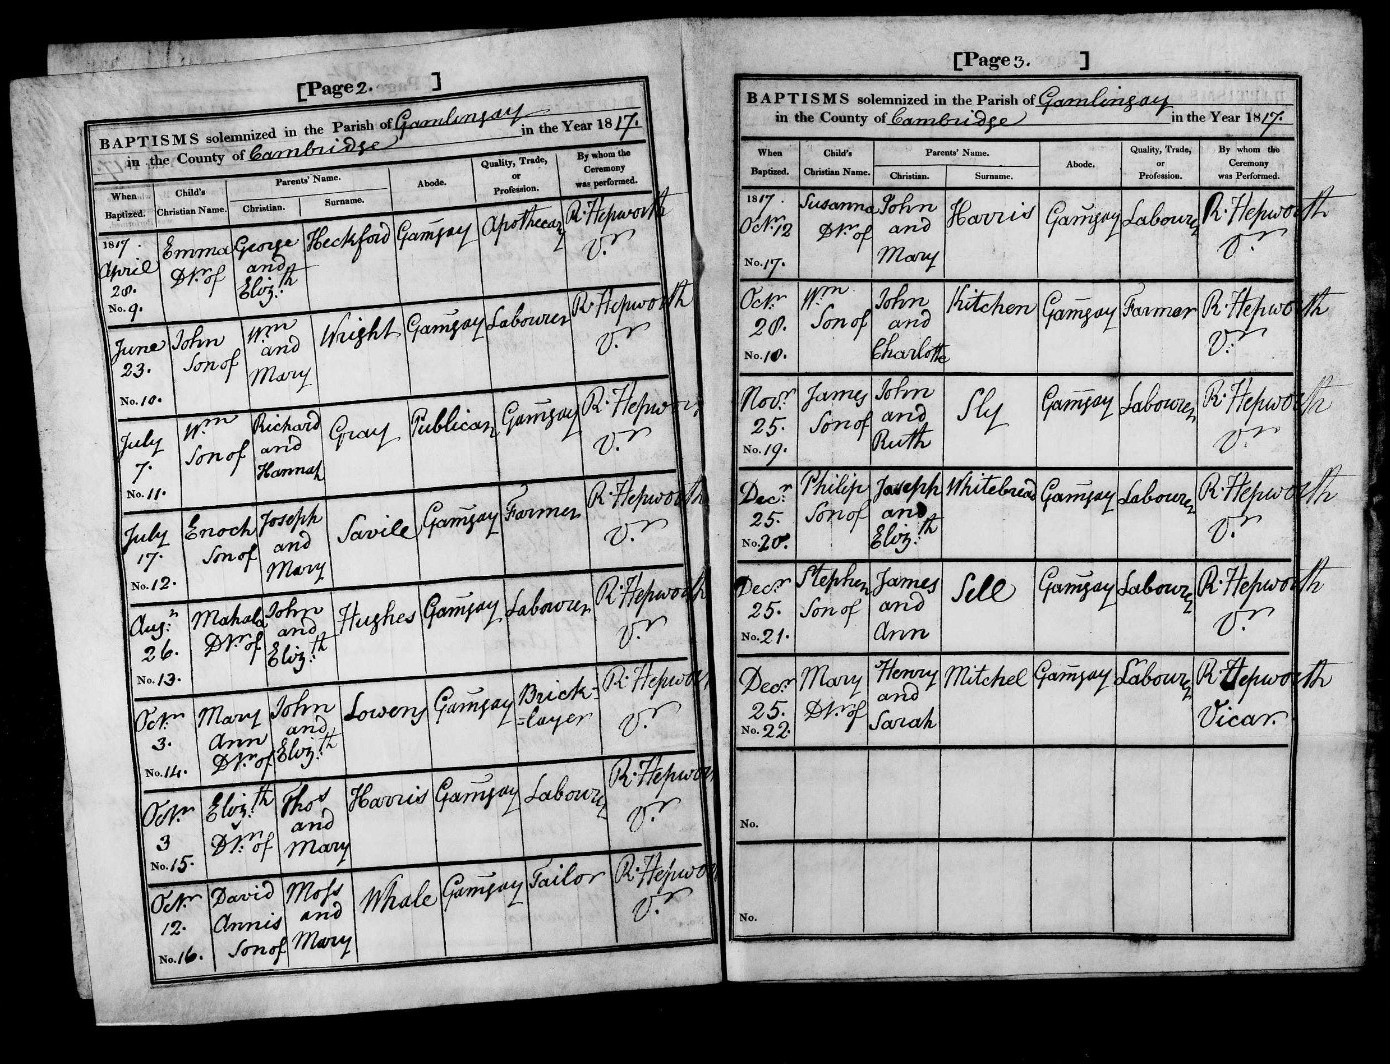 [Page 2. ]
BAPTISMS solemnized in the Parish of Gamlingay
in the County of Cambridge in the Year 1817.
When Baptized. Child's Christian Name. Parents' Name. Christian. Surname. Abode. Quality, Trade, or Profession. By whom the Ceremony was performed.
1817. Emma George Heckford Gamgay Apothecary R. Hepworth
April Dtr. of and Vr.
28. Eliz.th
No. 9.
June John Wm Wright Gamgay Labourer R. Hepworth
23. Son of and Vr.
No. 10. Mary
July Wm Richard Gray Publican Gamgay R. Hepworth
7. Son of and Vr.
No. 11. Hannah
July Enoch Joseph Savile Gamgay Farmer R. Hepworth
17. Son of and Vr.
No. 12. Mary
Aug. Mahala John Hughes Gamgay Labourer R. Hepworth
26. Dtr. of and Vr.
No. 13. Eliz.th
Octr. Mary John Lowens Gamgay Brick- R. Hepworth
3. Ann and =layer Vr.
No. 14. Dtr. of Eliz.th
Octr. Eliz.th Thos Harris Gamgay Labourer R. Hepworth
3 Dtr. of and Vr.
No. 15. Mary
Octr. David Moss Whale Gamgay Tailor R. Hepworth
12. Annis and Vr.
No. 16. Son of Mary
[Page 3. ]
BAPTISMS solemnized in the Parish of Gamlingay
in the County of Cambridge in the Year 1817.
When Baptized. Child's Christian Name. Parents' Name. Christian. Surname. Abode. Quality, Trade, or Profession. By whom the Ceremony was performed.
1817. Susanna John Harris Gamgay Labourer R. Hepworth
Octr. 12 Dtr. of and Vr.
No. 17. Mary
Octr. Wm John Kitchen Gamgay Farmer R. Hepworth
28. Son of and Vr.
No. 18. Charlotte
Novr. James John Sly Gamgay Labourer R. Hepworth
25. Son of and Vr.
No. 19. Ruth
Decr. Philip Joseph Whitebread Gamgay Labourer R. Hepworth
25. Son of and Vr.
No. 20. Eliz.th
Decr. Stephen James Sell Gamgay Labourer R. Hepworth
25. Son of and Vr.
No. 21. Ann
Decr. Mary Henry Mitchel Gamgay Labourer R. Hepworth
25. Dtr. of and Vicar.
No. 22. Sarah
No.
No.